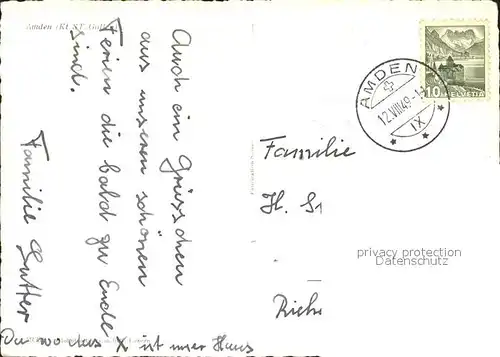 Amden (Kt. St. Gallen)
Auch ein Grüsschen
aus unseren schönen
Ferien die bald zu Ende
sind.
Familie Sutter
Da wo das X ist unser Haus
AMDEN
12.VIII.49
IX
10 HELVETIA
Familie
H. S
Riehe
privacy protection
Datenschutz